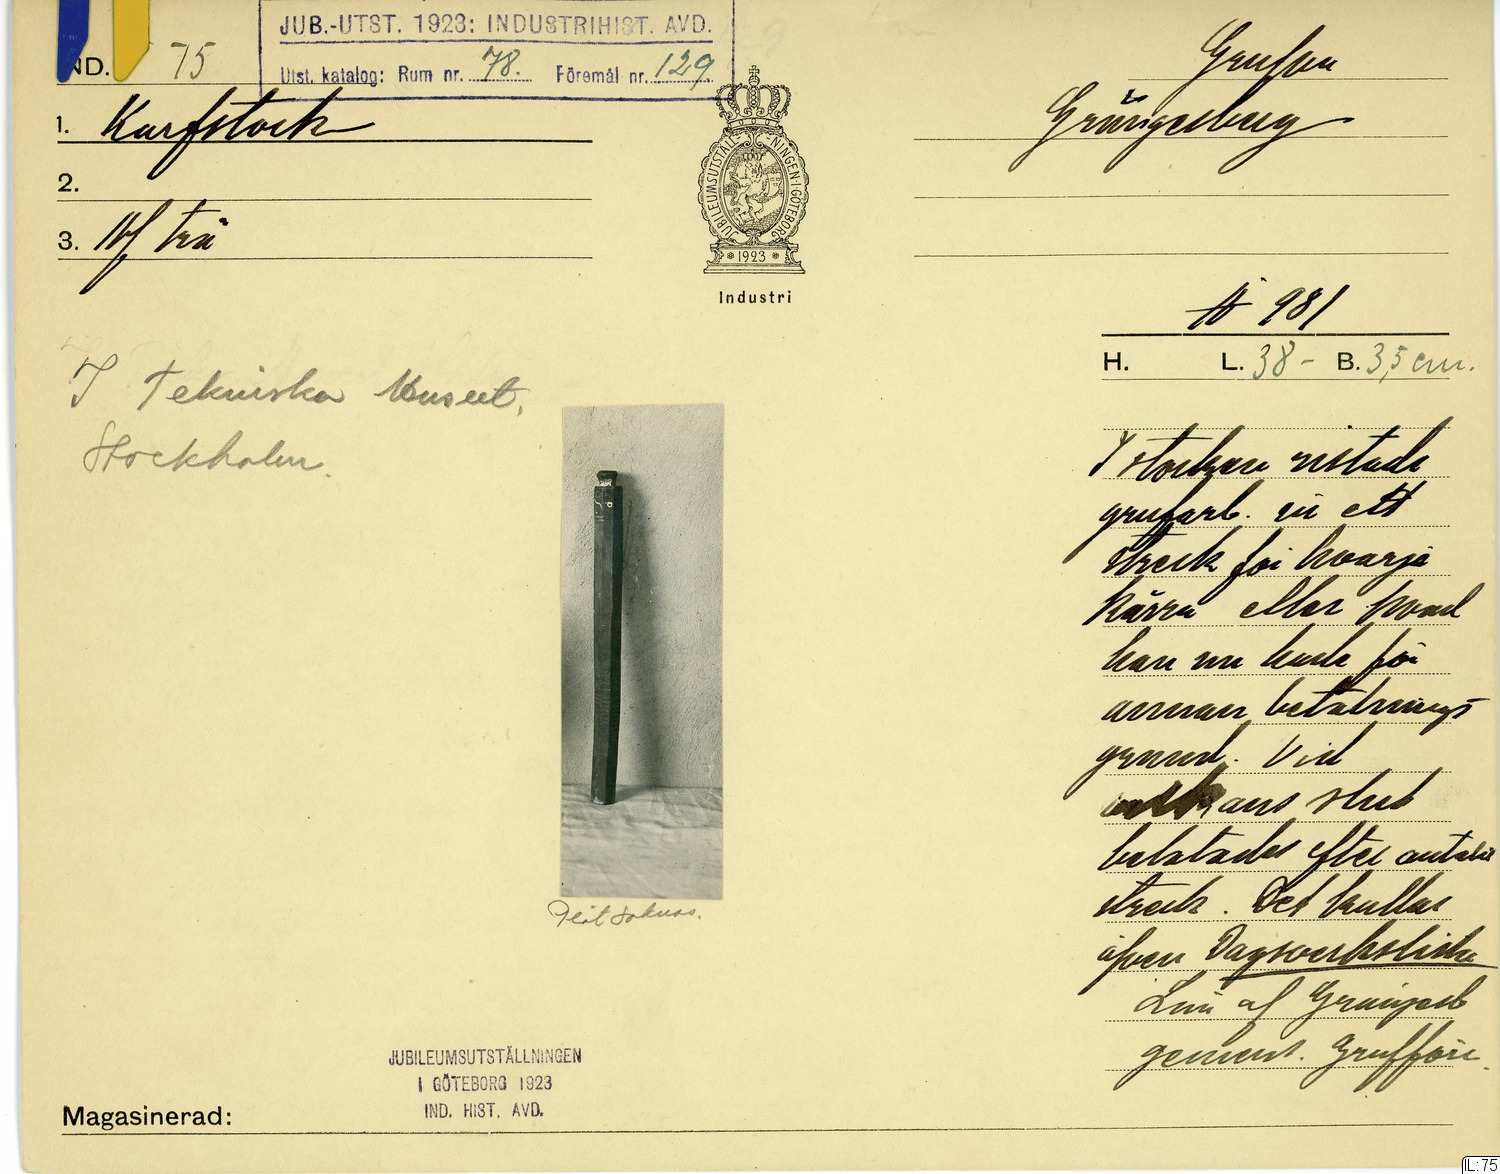 JUB.-UTST. 1923: INDUSTRIHIST. AVD.
Utst. katalog: Rum nr. 78. Föremål nr. 129
IND. 75
Grufva
Grängesberg
1. Karfstock
2.
3. Af trä
JUBILEUMSUTSTÄLLNINGEN I GÖTEBORG
1923
Industri
N 981
H. L. 38 - B. 3,5 cm.
I Tekniska Museet,
Stockholm.
I stocken ristade
grufarb. in ett
streck för hvarje
kärra eller hvad
han nu hade för
annan betalnings
grund. Vid
veckans slut
betalades efter antalet
streck. Det kallas
äfven Dagsverkssticka
Lån af Grängesb
gemens. Grufförv.
Plåt saknas.
JUBILEUMSUTSTÄLLNINGEN
I GÖTEBORG 1923
IND. HIST. AVD.
Magasinerad:
IL:75